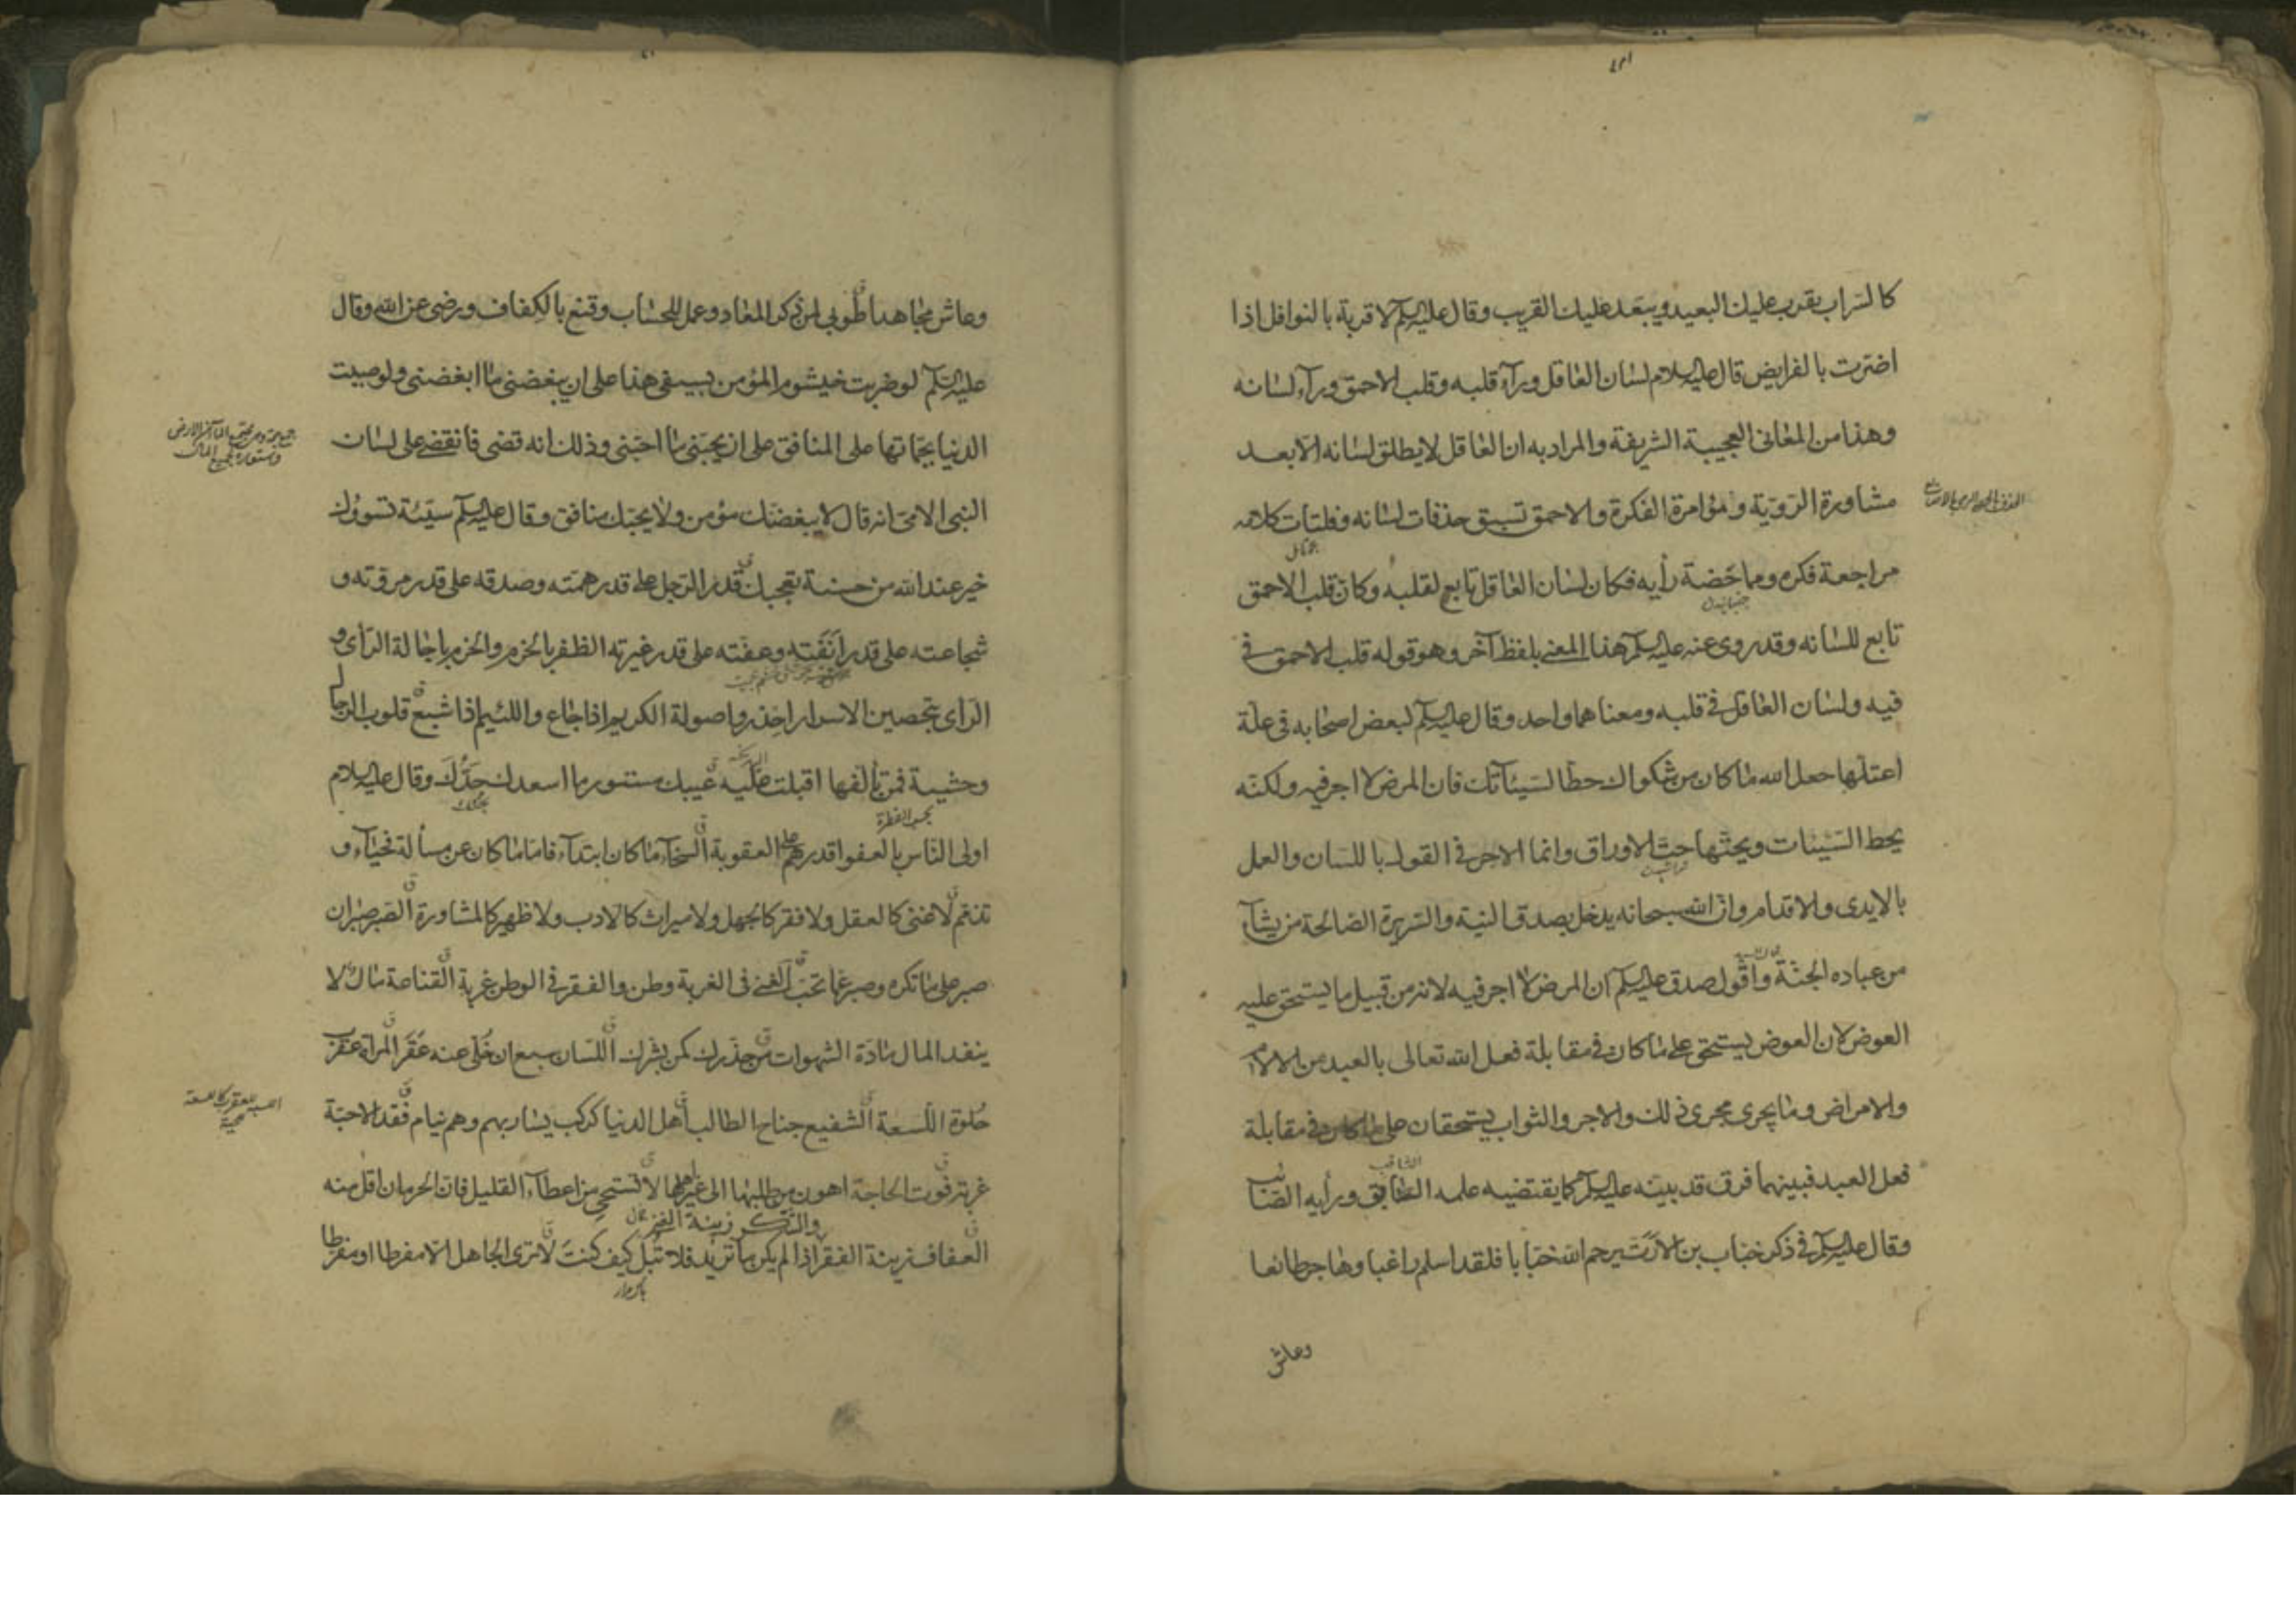 كالسّراب يقرب عليك البعيد ويبعّد عليك القريب وقال عليه السلم لا قربة بالنوافل اذا
اضرّت بالفرايض قال عليه السلام لسان العاقل ورآء قلبه وقلب الاحمق ورآء لسانه
وهذا من المعانى العجيبة الشريفة والمراد به ان العاقل لا يطلق لسانه الّا بعد
مشاورة الرّويّة ومؤامرة الفكرة والاحمق تسبق حذفات لسانه وفلتات كلامه
مراجعة فكره ومماخضة رأيه فكان لسان العاقل تابع لقلبه وكانّ قلب الاحمق
تابع للسانه وقد روى عنه عليه السلم هذا المعنى بلفظ آخر وهو قوله قلب الاحمق فى
فيه ولسان العاقل فى قلبه ومعناهما واحد وقال عليه السلم لبعض اصحابه فى علّة
اعتلّها جعل الله ما كان من شكواك حطّا لسيّئآتك فان المرض لا اجر فيه ولكنّه
يحط السّيّئات ويحثها حتّ الاوراق وانما الاجر فى القول باللسان والعمل
بالايدى والاقدام وانّ الله سبحانه يدخل بصدق النية والسّريرة الصّالحة من يشآء
من عباده الجنّة واقول صدق عليه السلم ان المرض لا اجر فيه لانه من قبيل ما يستحق عليه
العوض لان العوض يستحق على ما كان فى مقابلة فعل الله تعالى بالعبد من الالام
والامراض وما يجرى مجرى ذلك والاجر والثواب يستحقان على ما كان فى مقابلة
فعل العبد فبينهما فرق قد بيّنه عليه السلم كما يقتضيه علمه الثاقب ورأيه الصّائب
وقال عليه السلم فى ذكر خبّاب بن الارتّ يرحم الله خبّابا فلقد اسلم راغبا وهاجر طائعا
وعاش
وعاش مجاهدا طوبى لمن ذكر المعاد وعمل للحساب وقنع بالكفاف ورضى عن الله وقال
عليه السلم لو ضربت خيشوم المؤمن بسيفى هذا على ان يبغضنى ما ابغضنى ولو صببت
الدنيا بجمّاتها على المنافق على ان يحبّنى ما احبّنى وذلك انه قضى فانقضى على لسان
النبى الامىّ انه قال لا يبغضك مؤمن ولا يحبّك منافق وقال عليه السلم سيّئة تسوؤك
خير عند الله من حسنة تعجبك قدر الرّجل على قدر همّته وصدقه على قدر مروّته و
شجاعته على قدر انفته وعفّته على قدر غيرته الظفر بالحزم والحزم باجالة الرّأى و
الرّأى بتحصين الاسرار احذروا صولة الكريم اذا جاع واللئيم اذا شبع قلوب الرجال
وحشية فمن تألّفها اقبلت عليه عيبك مستور ما اسعدك جدّك وقال عليه السلام
اولى النّاس بالعفو اقدرهم على العقوبة السّخآء ما كان ابتدآء فاما ما كان عن مسألة فحيآء و
تذمّم لا غنى كالعقل ولا فقر كالجهل ولا ميراث كالادب ولا ظهير كالمشاورة الصّبر صبران
صبر على ما تكره وصبر عما تحبّ الغنى فى الغربة وطن والفقر فى الوطن غربة القناعة مال لا
ينفد المال مادّة الشهوات من حذّرك كمن بشّرك اللّسان سبع ان خلّى عنه عقر المرأة عقرب
حلوة اللّسعة الشفيع جناح الطالب اهل الدنيا كركب يسار بهم وهم نيام فقد الاحبّة
غربة فوت الحاجة اهون من طلبها الى غير اهلها لا تستحى من اعطآء القليل فانّ الحرمان اقلّ منه
والشكر زينة الغنى
العفاف زينة الفقر اذا لم يكن ما تريد فلا تبل كيف كنت لا ترى الجاهل الّا مفرطا او مفرّطا